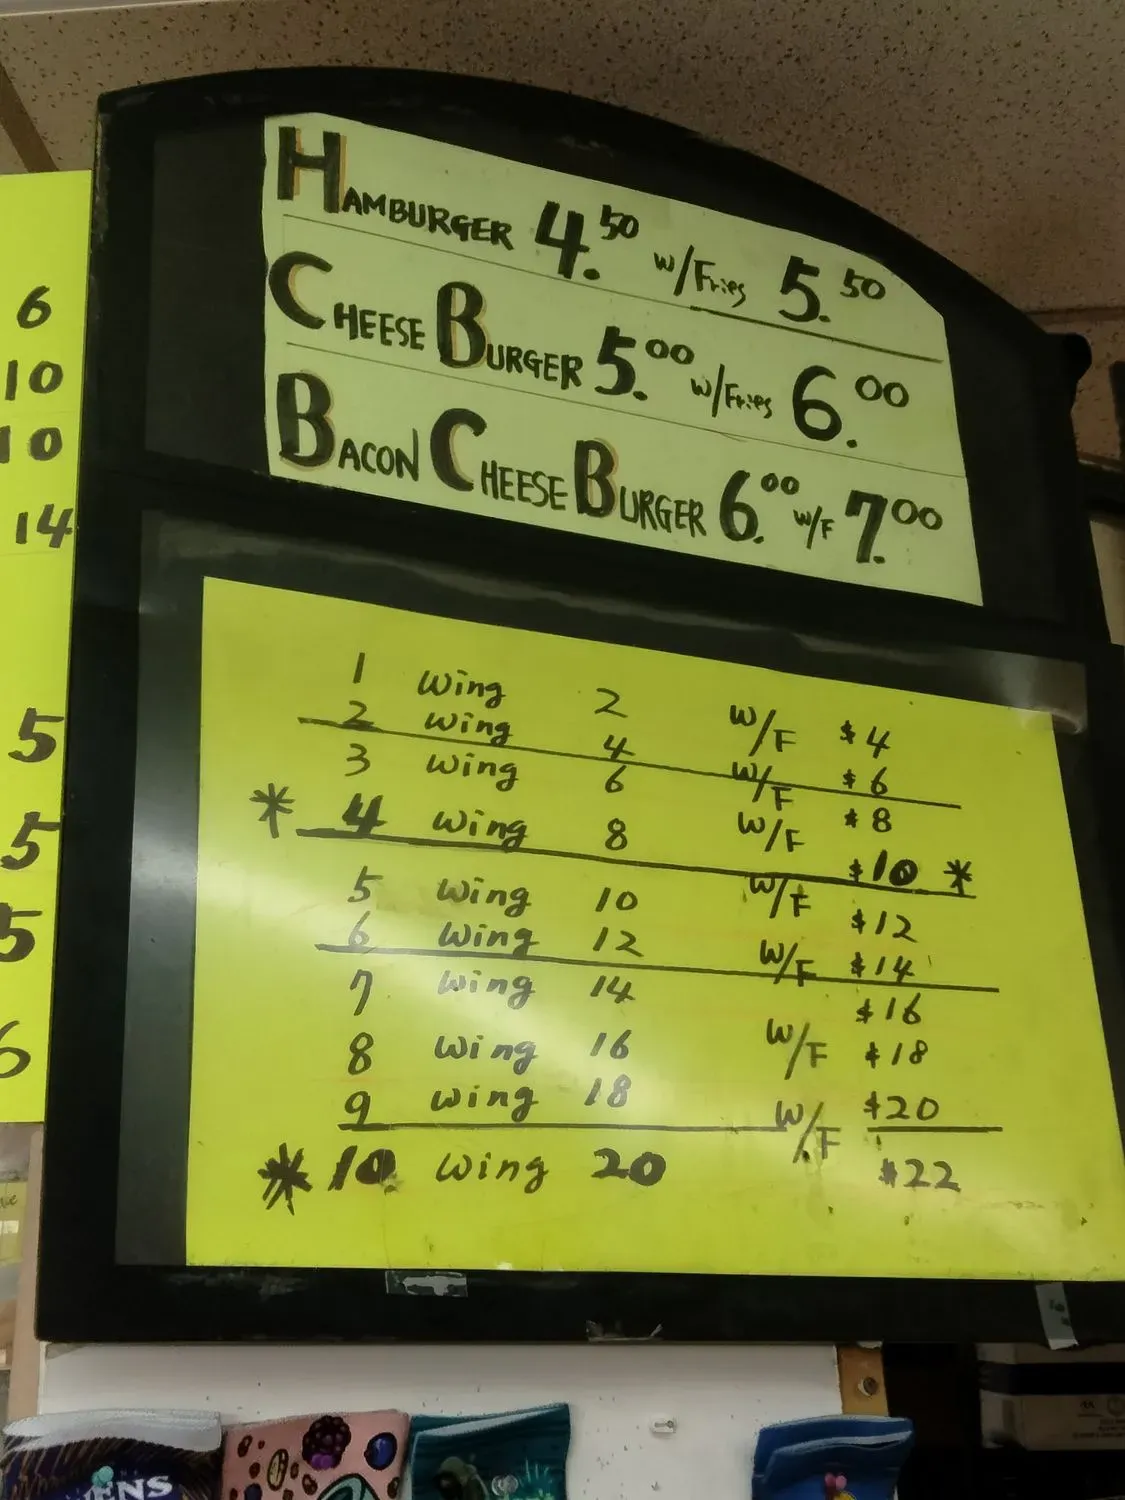 HAMBURGER 4.50 w/Fries 5.50
CHEESE BURGER 5.00 w/Fries 6.00
BACON CHEESE BURGER 6.00 w/F 7.00
1 wing 2 W/F $4
2 wing 4 W/F $6
3 wing 6 W/F $8
* 4 wing 8 W/F $10 *
5 wing 10 W/F $12
6 wing 12 $14
7 wing 14 W/F $16
8 wing 16 $18
9 wing 18 W/F $20
* 10 wing 20 $22
6
10
10
14
5
5
5
6
ENS